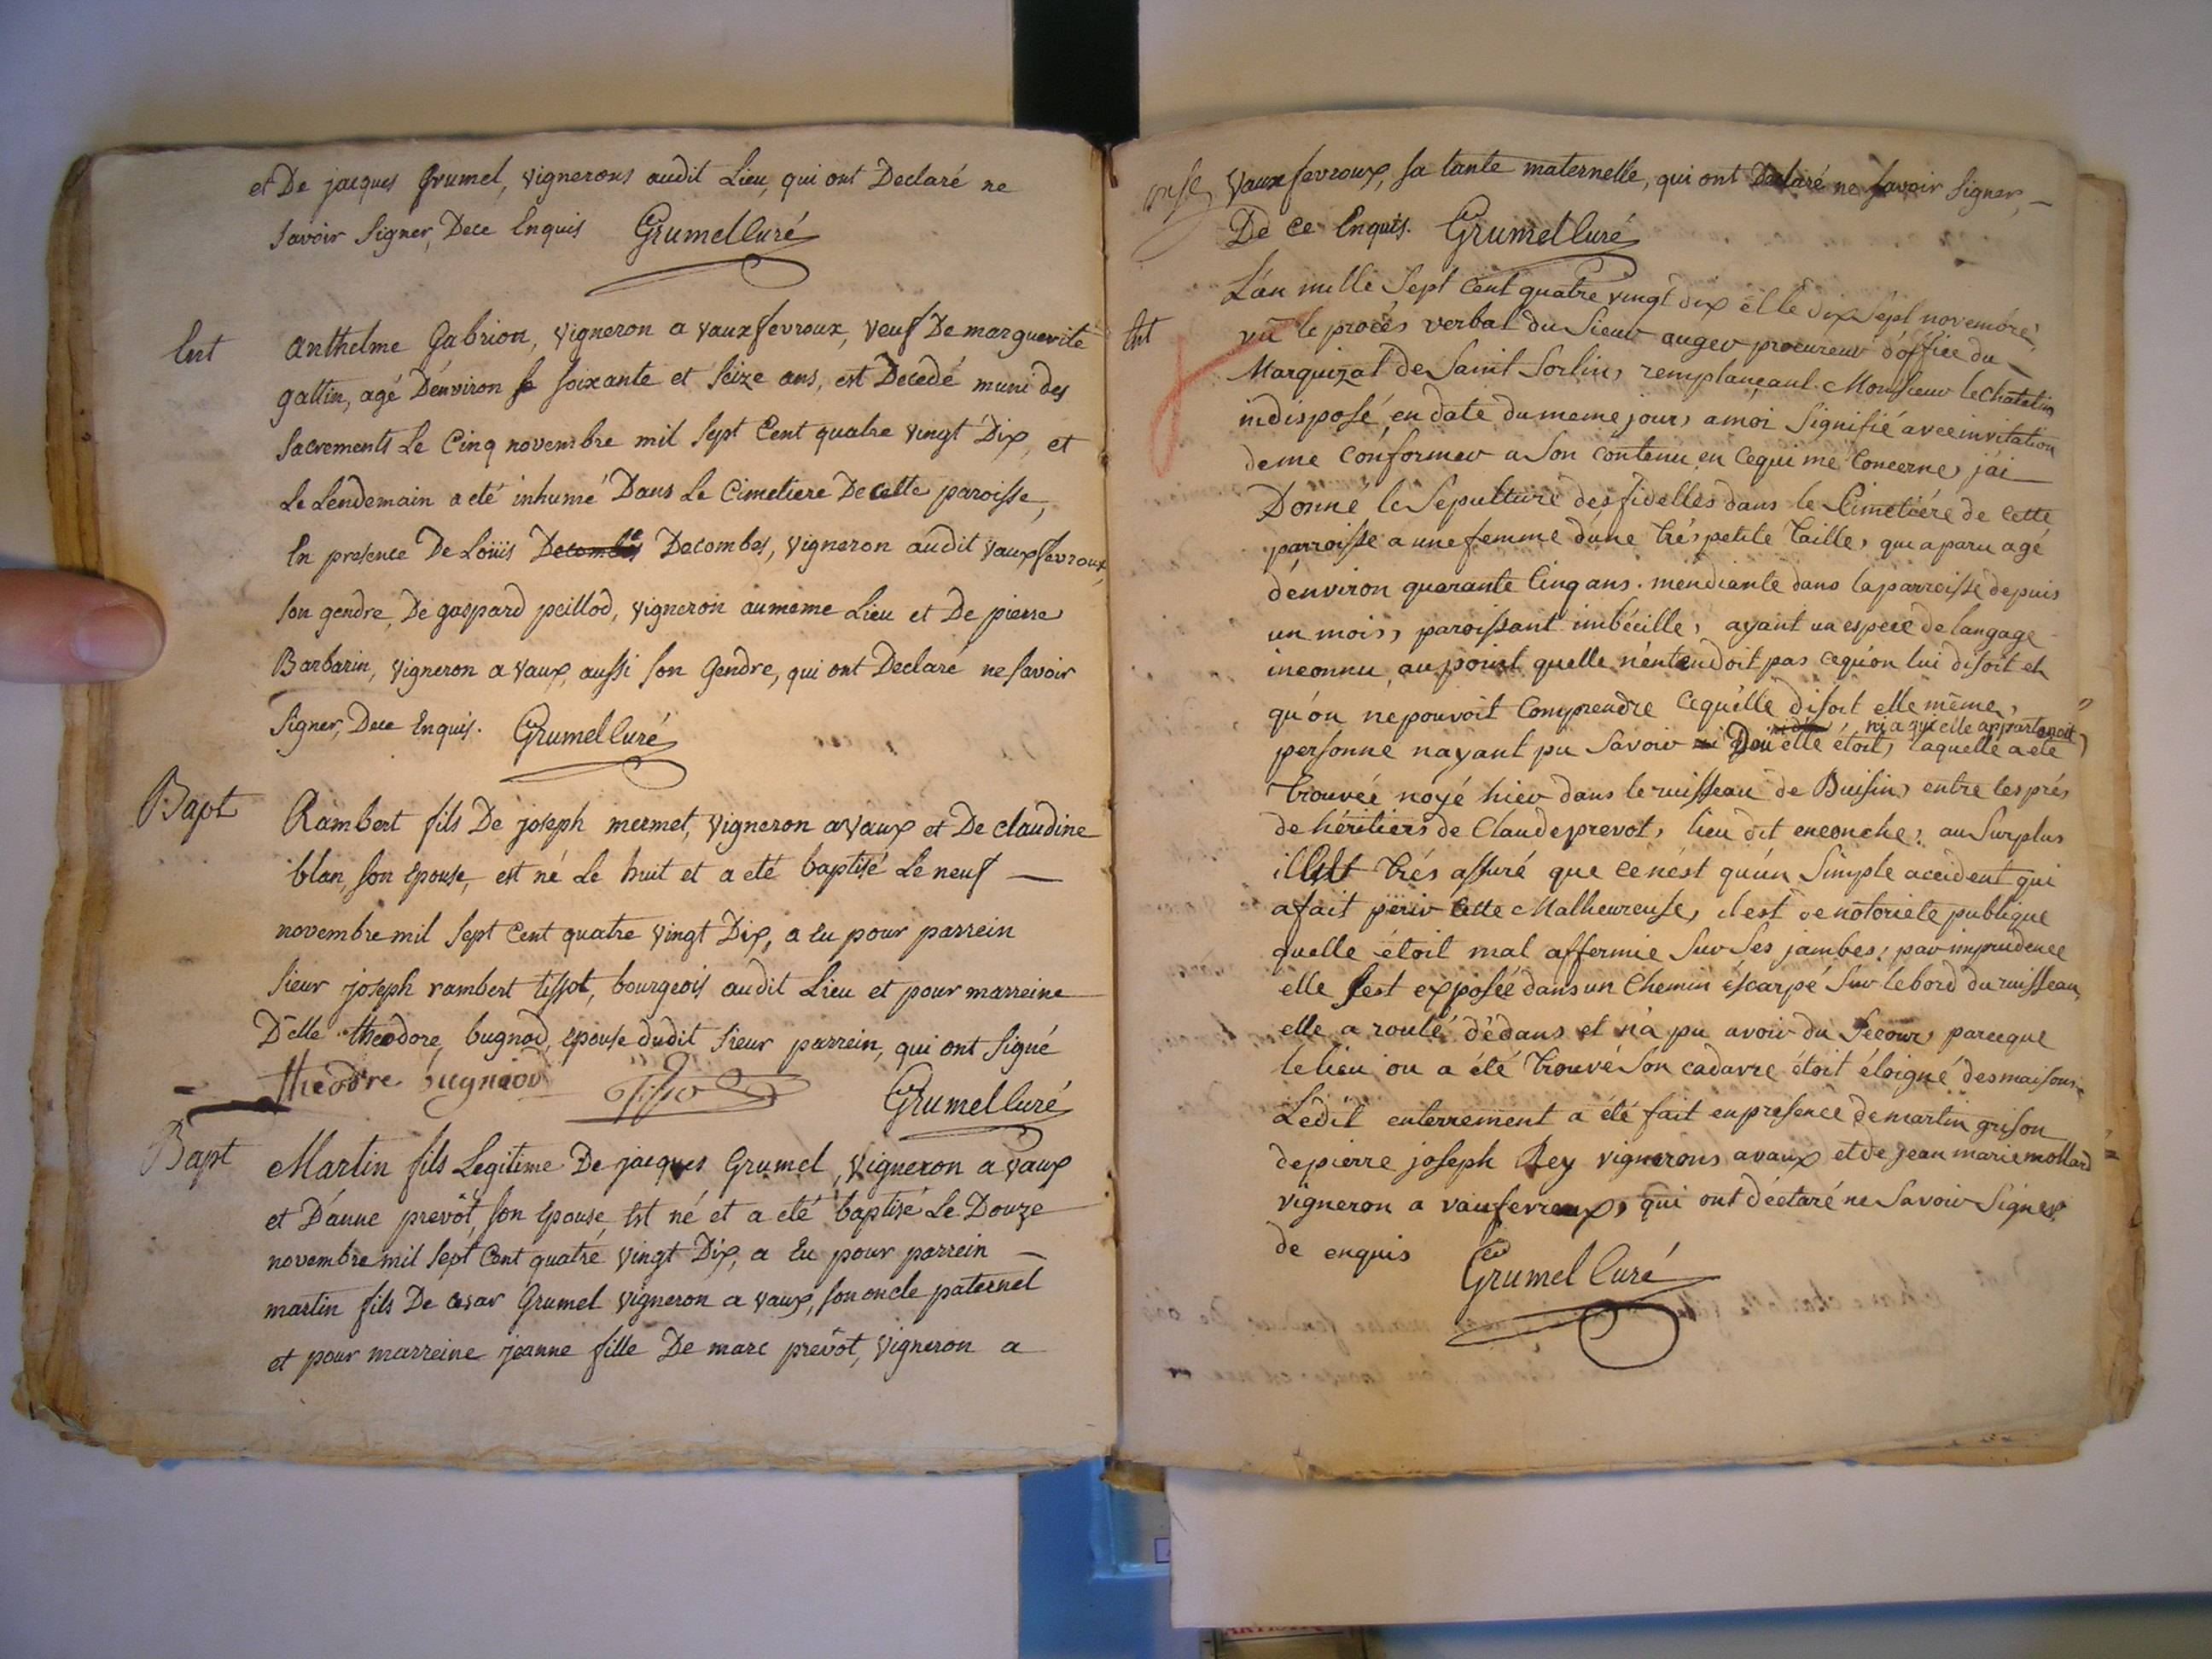 et De jacques Grumel, vignerons audit Lieu, qui ont Declaré ne
savoir signer, Dece Enquis Grumel Curé
Ent
anthelme Gabrion, vigneron a vauxfevroux, veuf De marguerite
gattin, agé D'environ se soixante et seize ans, est Decedé muni des
sacrements Le Cinq novembre mil sept Cent quatre vingt Dix, et
Le Lendemain a eté inhumé Dans Le Cimetiere De cette paroisse,
En presence De Loüis Decombes Decombes, vigneron audit vauxfevroux,
son gendre, De gaspard peillod, vigneron aumeme Lieu et De pierre
Barbarin, vigneron a vaux, aussi son Gendre, qui ont Declaré ne savoir
signer, Dece Enquis. Grumel Curé
Bapt
Rambert fils De joseph mermet, vigneron a vaux et De claudine
blan, son Epouse, est né Le huit et a eté baptisé Le neuf —
novembre mil sept Cent quatre vingt Dix, a Eu pour parrein
sieur joseph rambert tissot, bourgeois audit Lieu et pour marreine
D'elle theodore, bugnod, Epouse dudit sieur parrein, qui ont signé
theodore bugniod Tissot Grumel Curé
Bapt
Martin fils Legitime De jacques Grumel, vigneron a vaux
et D'anne prevôt, son Epouse, Est né et a eté baptisé Le Douze
novembre mil sept Cent quatre vingt Dix, a Eu pour parrein —
martin fils De cesar Grumel vigneron a vaux, son oncle paternel
et pour marreine jeanne fille De marc prevôt, vigneron a
vauxfevroux, sa tante maternelle, qui ont Declaré ne savoir signer, —
De ce Enquis. Grumel Curé
Ent
L'an mille sept cent quatre vingt dix et le dix sept novembre,
vû le procès verbal du Sieur auger procureur d'office du —
Marquizat de Saint Sorlin, remplançant Monsieur le Chatelin
indisposé, en date dumeme jour, amoi signifié avec invitation
deme Conformer a Son contenu en Cequi me Concerne, j'ai —
Donné le Sepulture des fidelles dans le Cimetiére de cette
parroisse a une femme d'une trés petite taille, qui aparu agé
d'environ quarante Cinq ans. mendiante dans laparroisse depuis
un mois, paroissant imbécille, ayant un espece de langage
inconnu, aupoint quelle n'entendoit pas cequ'on lui disoit et
qu'on nepouvoit Comprendre Cequ'elle disoit elle même,
ni a qui elle appartenoit
personne nayant pu Savoir D'ou elle étoit, laquelle a eté
trouvée noyé hier dans le ruisseau de Buisin, entre les prés
de héritiers de Claude prevot, lieu dit enconche; au Surplus
il Est trés assuré que ce n'est qu'un Simple accident qui
afait périr cette Malheureuse, il est de notorieté publique
quelle étoit mal affermie Sur Ses jambes; par imprudence
elle s'est exposée dans un Chemin éscarpé Sur lebord duruisseau,
elle a roulé dédans et n'a pu avoir du Secour, parceque
le lieu ou a été trouvé Son cadavre étoit éloigné des maisons.
Ledit enterrement a été fait enpresence de martin grison
depierre joseph Rey vignerons avaux et de jean marie mollard
vigneron a vaufevroux, qui ont déctaré ne Savoir Signer
de enquis Grumel Curé